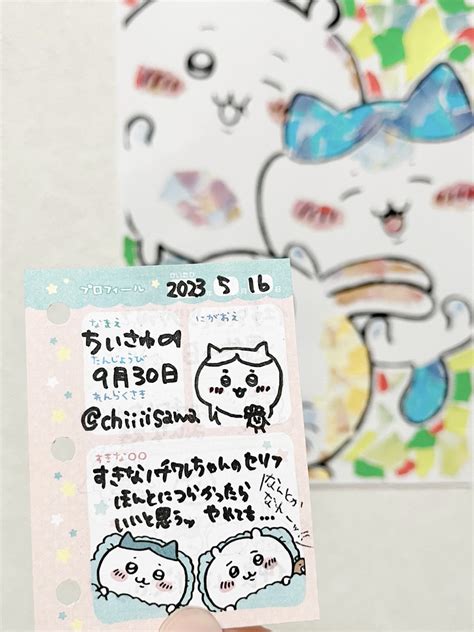 プロフィール 2023 5 16
なまえ
ちいさゆ
にがおえ
たんじょうび
9月30日
れんらくさき
@chiiiisawa
すきな○○
すきなハチワレちゃんのセリフ
ほんとにつらかったら
いいと思うッ やれても...
なんとか